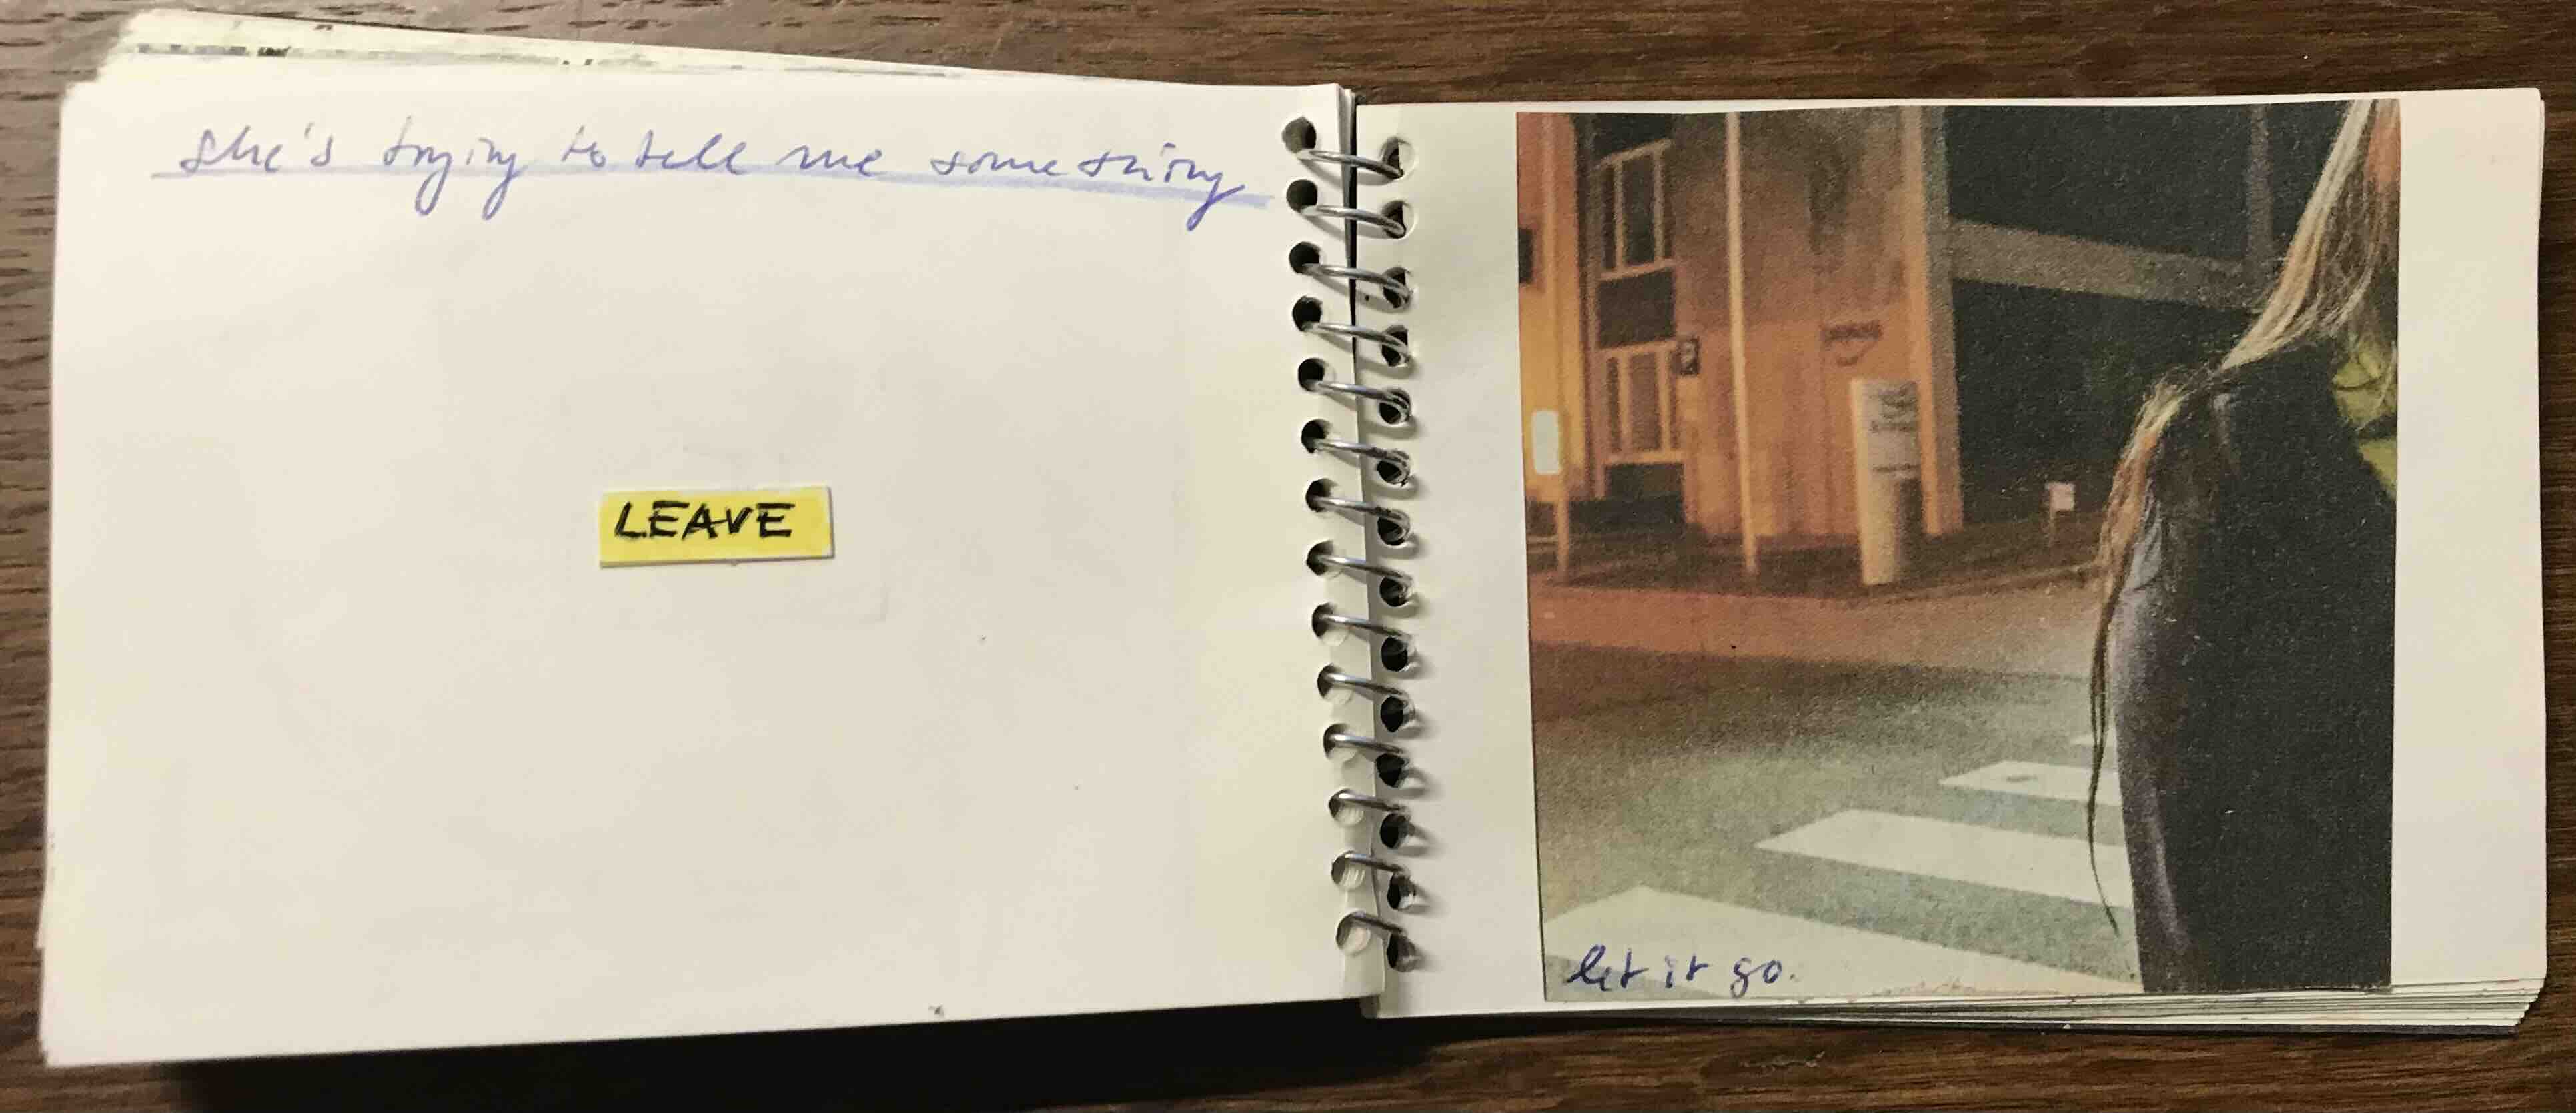 she's trying to tell me something
LEAVE
P
let it go.